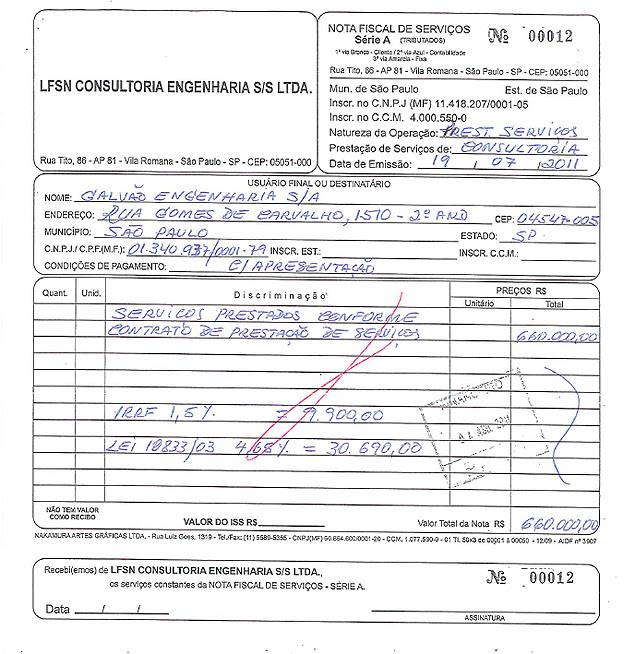 LFSN CONSULTORIA ENGENHARIA S/S LTDA.
Rua Tito, 86 - AP 81 - Vila Romana - São Paulo - SP - CEP: 05051-000
NOTA FISCAL DE SERVIÇOS
Série A (TRIBUTADOS)
Nº 00012
1ª via Branca - Cliente / 2ª via Azul - Contabilidade
3ª via Amarela - Fixa
Rua Tito, 86 - AP 81 - Vila Romana - São Paulo - SP - CEP: 05051-000
Mun. de São Paulo Est. de São Paulo
Inscr. no C.N.P.J (MF) 11.418.207/0001-05
Inscr. no C.C.M. 4.000.550-0
Natureza da Operação: PREST. SERVIÇOS
Prestação de Serviços de: CONSULTORIA
Data de Emissão: 19 / 07 / 2011
USUÁRIO FINAL OU DESTINATÁRIO
NOME: GALVÃO ENGENHARIA S/A
ENDEREÇO: RUA GOMES DE CARVALHO, 1510 - 2º AND CEP: 04547-005
MUNICÍPIO: SÃO PAULO ESTADO: SP
C.N.P.J./ C.P.F.(M.F.): 01.340.937/0001-79 INSCR. EST.: INSCR. C.C.M.:
CONDIÇÕES DE PAGAMENTO: C/ APRESENTAÇÃO
Quant. Unid. Discriminação PREÇOS R$
Unitário Total
SERVIÇOS PRESTADOS CONFORME
CONTRATO DE PRESTAÇÃO DE SERVIÇOS 660.000,00
IRRF 1,5% = 9.900,00
LEI 10833/03 4,65% = 30.690,00
NÃO TEM VALOR
COMO RECIBO
VALOR DO ISS R$ Valor Total da Nota R$ 660.000,00
NAKAMURA ARTES GRÁFICAS LTDA. - Rua Luiz Goes, 1319 - Tel./Fax: (11) 5589-5355 - CNPJ(MF) 60.884.600/0001-20 - CCM. 1.077.590-0 - 01 Tl. 50x3 de 00001 à 00050 - 12/09 - AIDF nº 3907
Recebi(emos) de LFSN CONSULTORIA ENGENHARIA S/S LTDA.,
os serviços constantes da NOTA FISCAL DE SERVIÇOS - SÉRIE A.
Nº 00012
Data / /
ASSINATURA